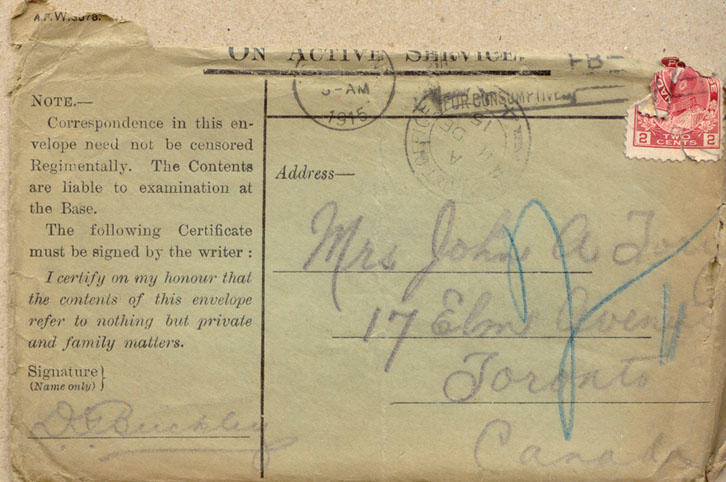 A.F.W.3078.
ON ACTIVE SERVICE.
NOTE.—
Correspondence in this en-
velope need not be censored
Regimentally. The Contents
are liable to examination at
the Base.
The following Certificate
must be signed by the writer :
I certify on my honour that
the contents of this envelope
refer to nothing but private
and family matters.
Signature
(Name only)
D G Buckley
AM
1915
FOR CONSUMPTIVES
DE 15
A
2 TWO CENTS 2
Address—
Mrs John A
17 Elm Avenue
Toronto
Canada